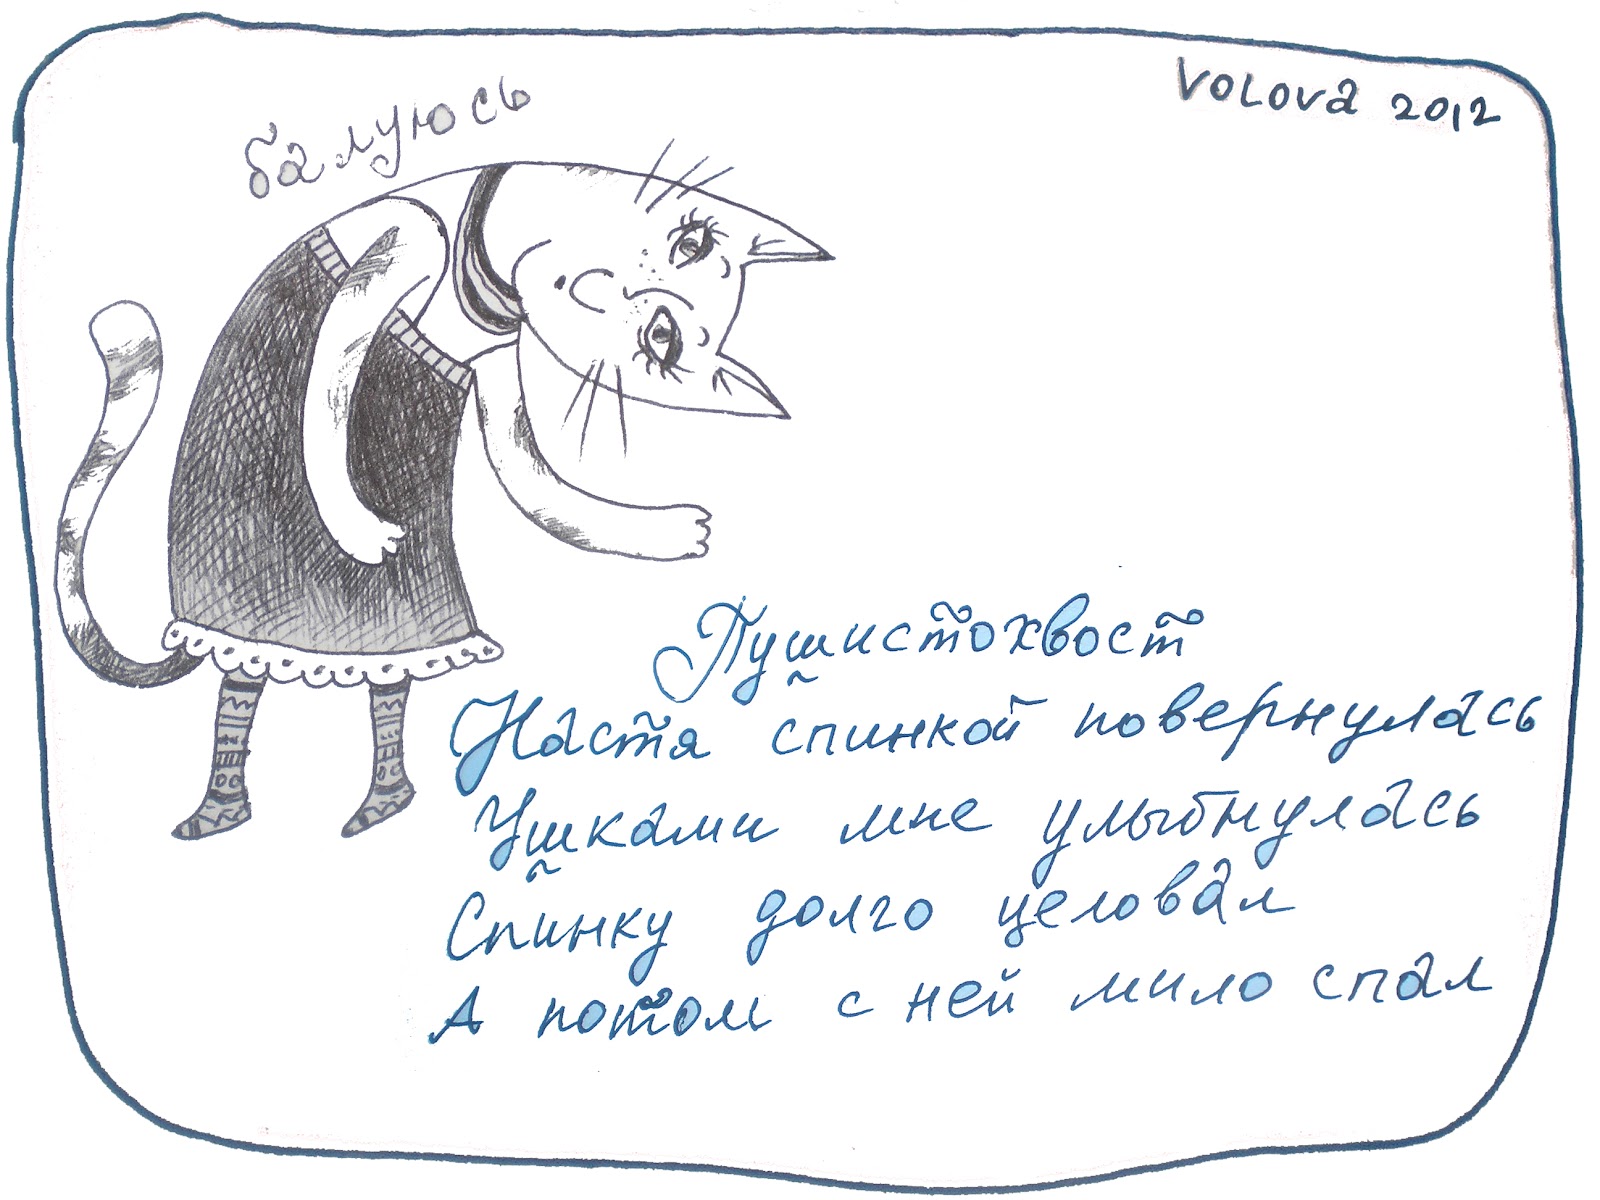 VOLOVA 2012
балуюсь
Пушистохвост
Настя спинкой повернулась
Ушками мне улыбнулась
Спинку долго целовал
А потом с ней мило спал